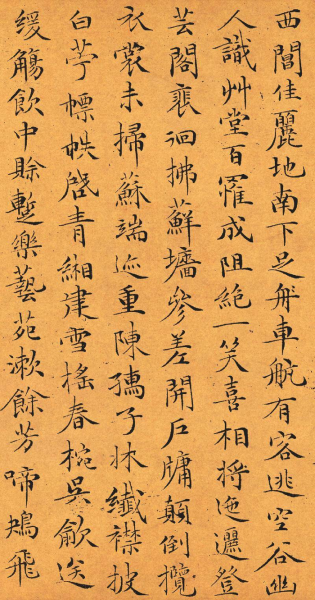 西閶佳麗地南下足舟車航有客逃空谷幽
人識艸堂百罹成阻絕一笑喜相將迤邐登
芸閣裵徊拂蘚墻參差開戶牖顛倒攬
衣裳未掃蘇端迹重陳孺子牀纖襟披
白苧幖帙啓青緗建雪搖春椀吳歈送
緩觴飲中賒蹔樂藝苑漱餘芳啼鴂飛